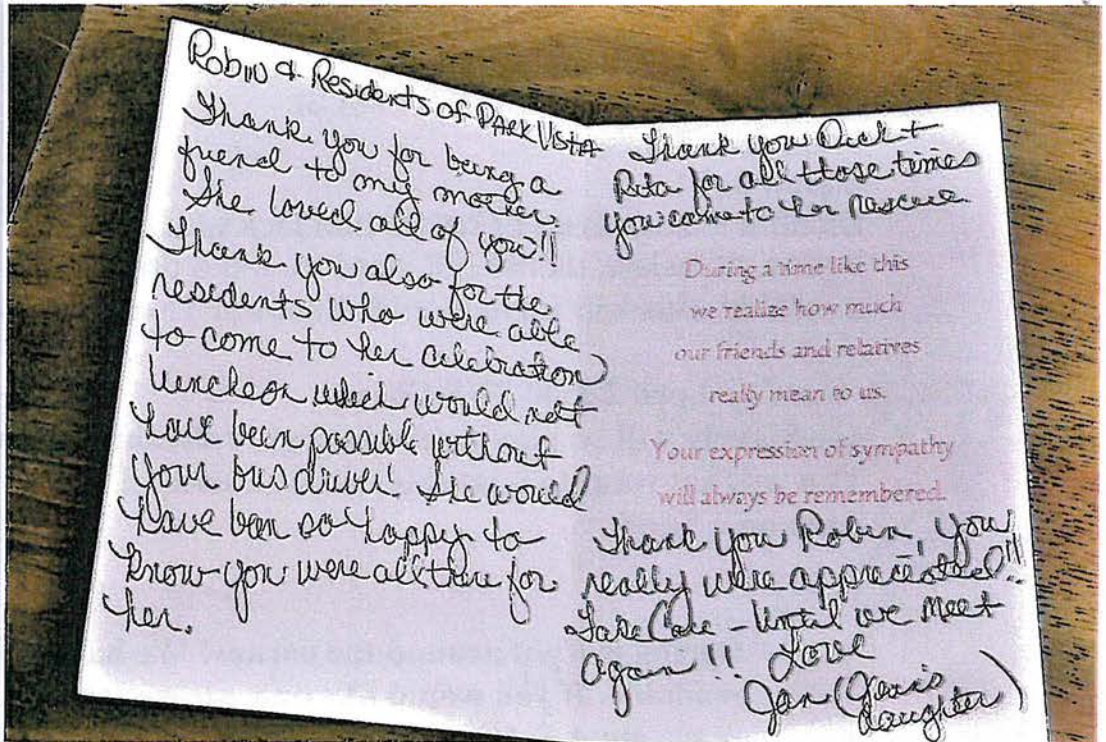 Robin & Residents of Park Vista
Thank you for being a
friend to my mother.
She loved all of you!!
Thank you also for the
residents who were able
to come to her celebration
luncheon which would not
have been possible without
your bus driver! She would
have been so happy to
know you were all there for
her.
Thank you Dick &
Rita for all those times
you came to her rescue.
During a time like this
we realize how much
our friends and relatives
really mean to us.
Your expression of sympathy
will always be remembered.
Thank you Robin, you
really were appreciated!!
Take Care - Until we meet
again!! Love
Jan (
daughter)